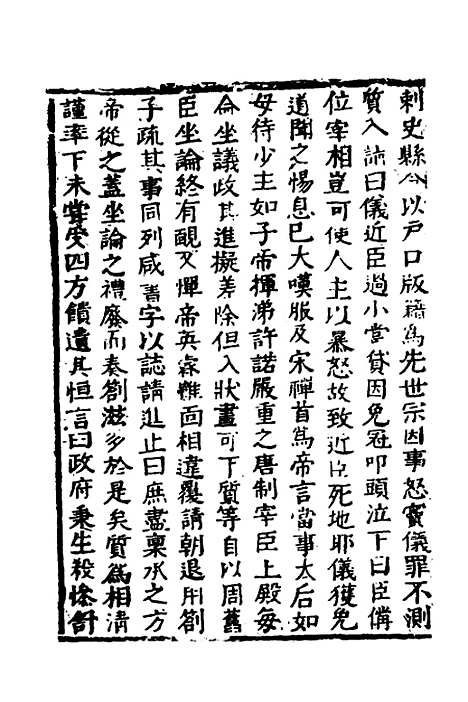 刺史縣令以戶口版籍爲先世宗因事怒竇儀罪不測
質入請曰儀近臣過小當貸因免冠叩頭泣下曰臣備
位宰相豈可使人主以暴怒故致近臣死地耶儀獲免
道聞之惕息已大嘆服及宋禪首爲帝言當事太后如
母待少主如子帝揮涕許諾嚴重之唐制宰臣上殿每
命坐議政其進擬差除但入狀畫可下質等自以周舊
臣坐論終有靦又憚帝英睿難面相違覆請朝退用劄
子疏其事同列咸書字以誌請進止曰庶盡稟承之方
帝從之蓋坐論之禮廢而奏劄滋多於是矣質爲相清
謹率下未嘗受四方饋遺其恒言曰政府秉生殺慘舒